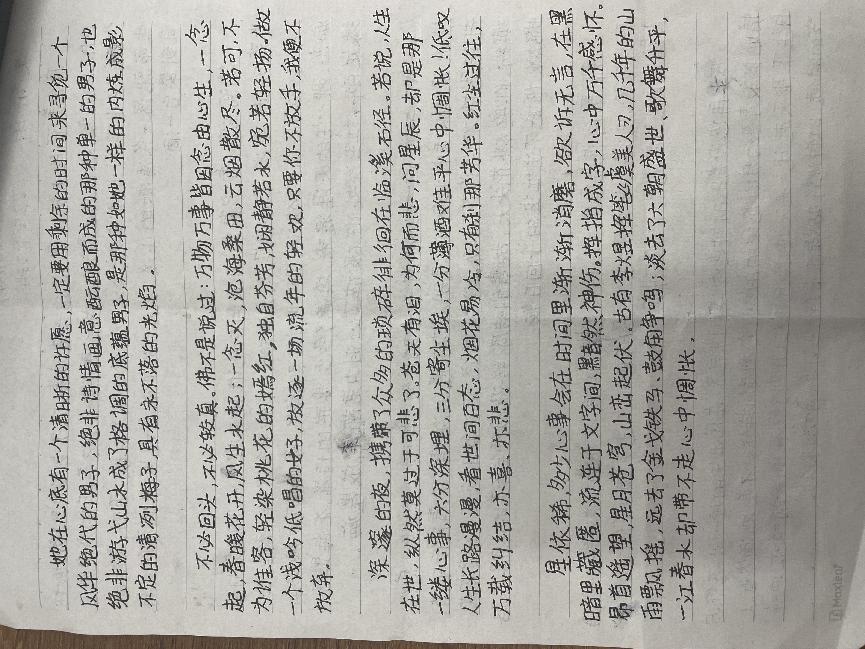 她在心底有一个清晰的许愿，一定要用剩余的时间来寻觅一个
风华绝代的男子，绝非诗情画意酝酿而成的那种单一的男子，也
绝非游弋山水成了格调的底蕴男子，是那种如她一样的内炼成影
不定的清冽梅子，具有永不落的光焰。
不必回头，不必较真。佛不是说过：万物万事皆因念由心生，一念
起，春暖花开，风生水起；一念灭，沧海桑田，云烟散尽。若可，不
为谁客，轻染桃花的嫣红，独自芬芳，娴静若水，宛若轻扬。做
一个浅吟低唱的女子，放逐一场流年的轻欢，只要你不放手，我便不
放弃。
深邃的夜，携带了众多的琐碎徘徊在临溪石径。若说，人生
在世，纵然莫过于可悲了。苍天有泪，为何而悲，问星辰，却是那
一缕心事，六分深埋，三分寄尘埃，一分薄酒难平心中惆怅！低叹
人生长路漫漫，看世间百态，烟花易冷，只有刹那芳华。红尘过往，
万载纠结，亦喜、亦悲。
星依稀，多少心事会在时间里渐渐消磨，欲诉无言，在黑
暗里藏匿，流连于文字间，黯然神伤。挥指成字，心中万千感怀。
昂首遥望，星月苍穹，山峦起伏，古有李煜挥笔虞美人，几千年的山
雨飘摇，远去了金戈铁马、鼓角争鸣，淡去了六朝盛世、歌舞升平，
一江春水却带不走心中惆怅。
Maxleaf